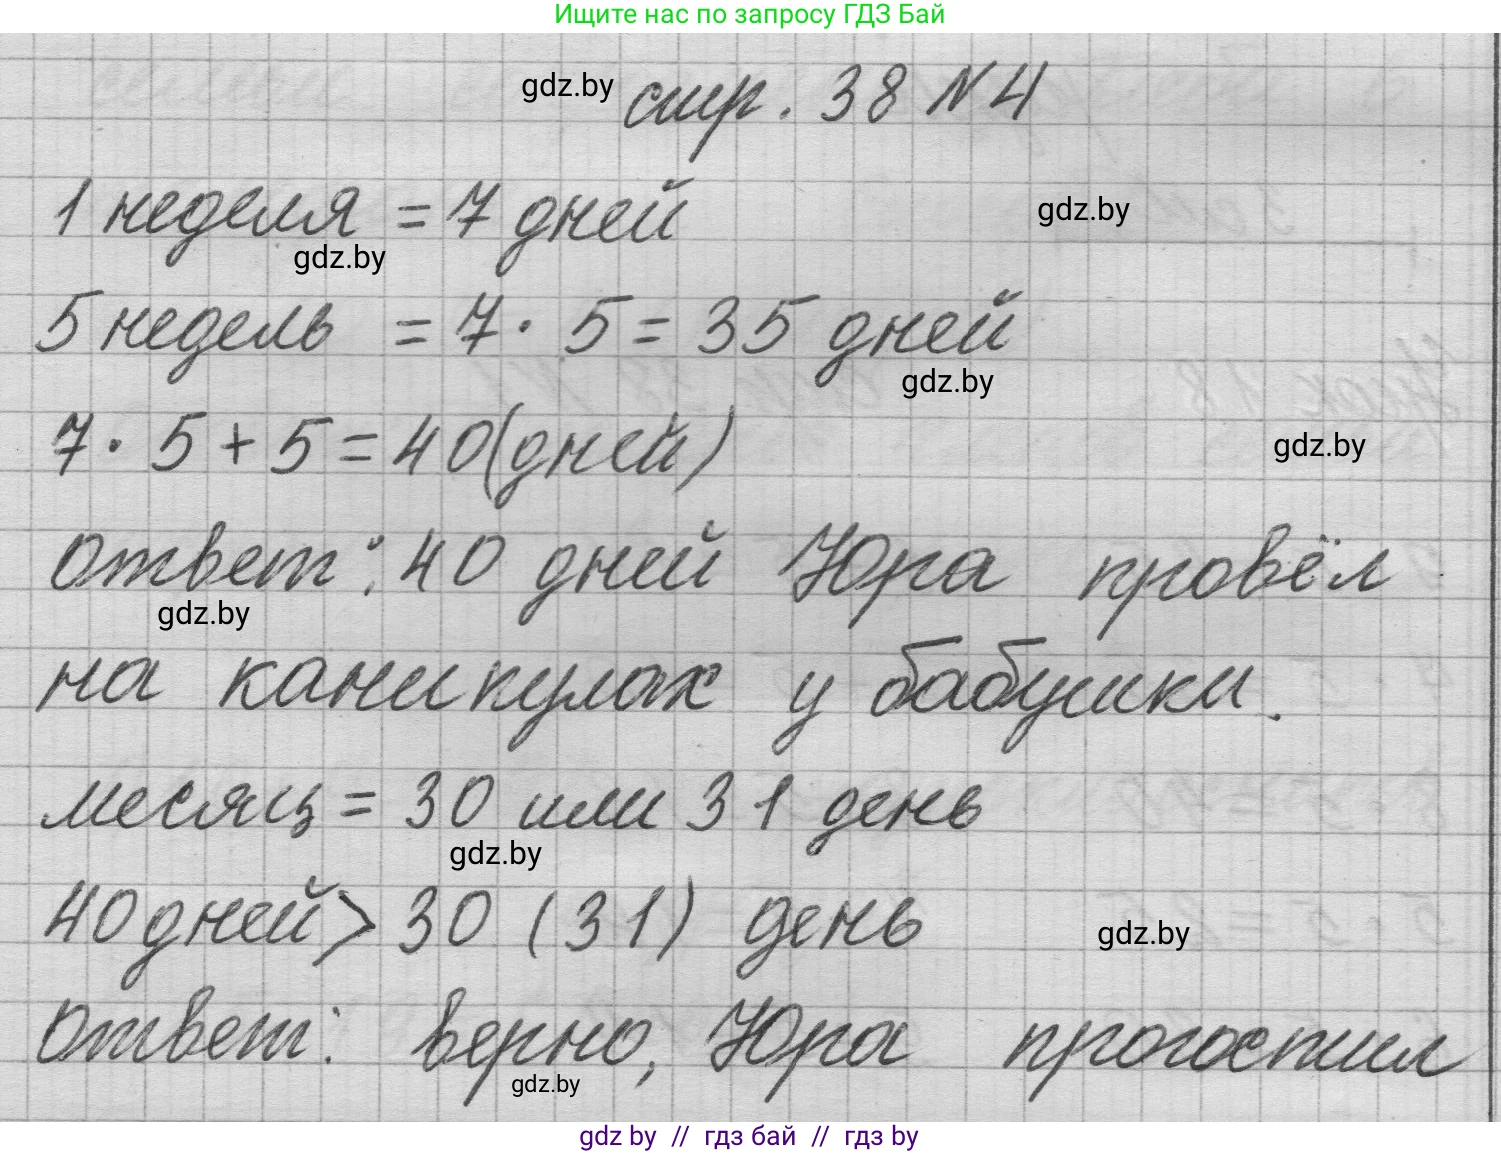 Ищите нас по запросу ГДЗ Бай
gdz.by стр. 38 N 4
1 неделя = 7 дней gdz.by
gdz.by
5 недель = 7 · 5 = 35 дней
gdz.by
7 · 5 + 5 = 40 (дней) gdz.by
ответ: 40 дней Юра провёл
gdz.by
на каникулах у бабушки.
месяц = 30 или 31 день
gdz.by
40 дней > 30 (31) день gdz.by
ответ: верно, Юра прогостил
gdz.by
gdz by // гдз бай // гдз by